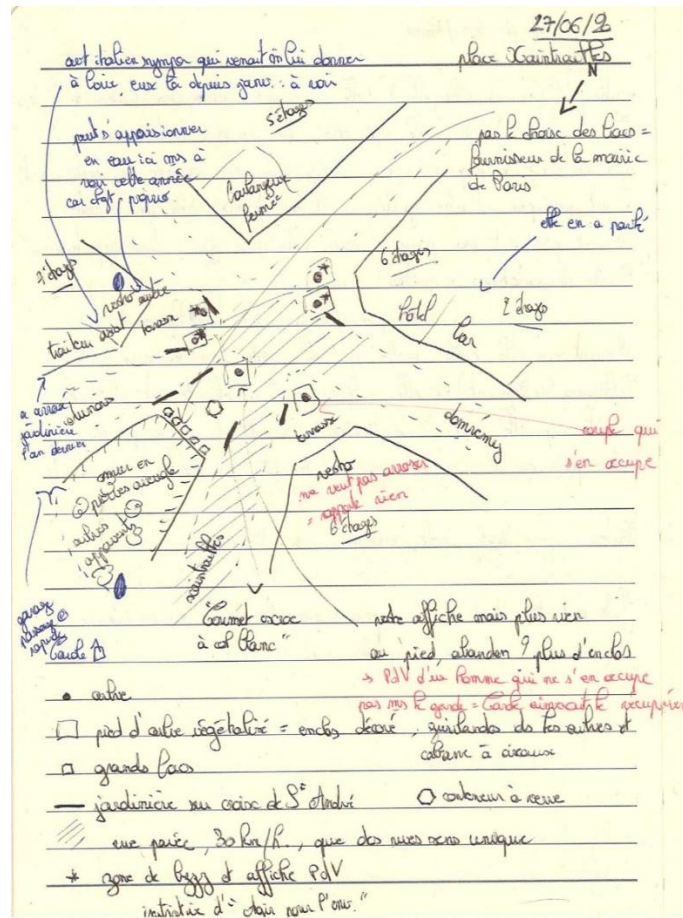 27/06/2
place Xaintrailles
N
art italien sympa qui venait
à l'air, eux là depuis janv. : à voir
peut s'approvisionner
en eau ici ms à
voir cette année
car chgt proprio
5 étages
boulangerie
fermée
pas le choix des bacs =
fournisseur de la mairie
de Paris
elle en a parlé
6 étages
hôtel
bar
2 étages
étages
resto autre
traiteur asiat
terrasse
a arrosé
jardinière
l'an dernier
terrasse
domrémy
couple qui
s'en occupe
resto
ne veut pas arroser
rapporte rien
6 étages
mur en
pierres aveugle
arbres
apparents
xaintrailles
passage
rapide
Carole
"Gourmet escroc
à col blanc"
notre affiche mais plus rien
au pied, abandon ? plus d'enclos
→ PdV d'un homme qui ne s'en occupe
pas ms le garde = Carole aimerait le récupérer
arbre
pied d'arbre végétalisé = enclos décoré, guirlandes ds les arbres et
cabane à oiseaux
grands bacs
jardinière sur croix de St André
conteneur à verre
rue pavée, 30 km/h., que des rues sens unique
* zone de bzzz et affiche PdV
initiative d'"agir pour l'env."